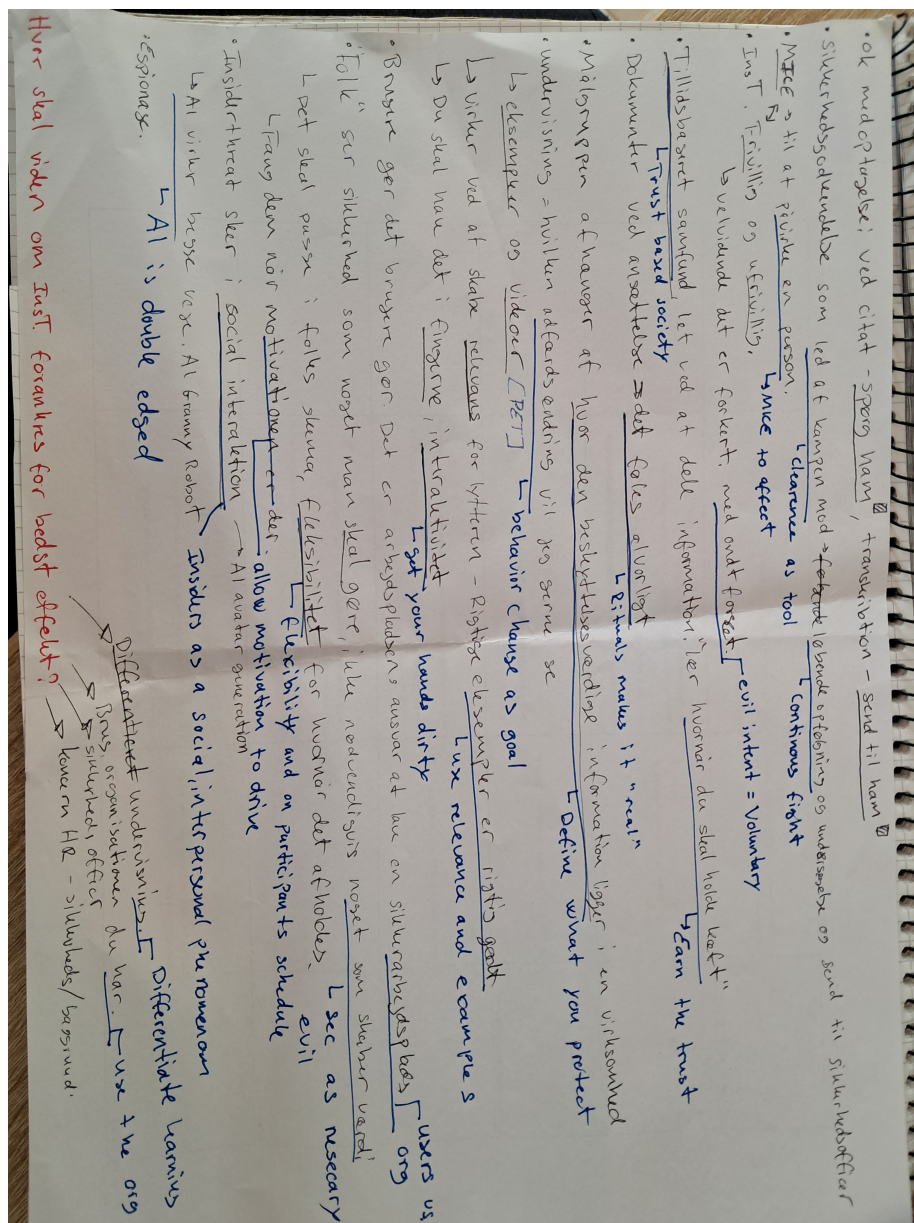 · ok med optagelse; ved citat - spørg ham, transkribtion - send til ham
· sikkerhedsgodkendelse som led af kampen mod → løbende opfølgning og undersøgelse og send til sikkerhedsofficer
↳ clearence as tool
↳ Continous fight
· MICE → til at påvirke en person.
↳ MICE to affect
· InsT. Frivillig og ufrivillig.
↳ velvidende det er forkert, med ondt forsæt
evil intent = Voluntary
· Tillidsbaseret samfund, let ved at dele information. "lær hvornår du skal holde kæft"
↳ Trust based society
↳ Earn the trust
· Dokumenter ved ansættelse → det føles alvorligt
↳ Rituals makes it "real"
· Målgruppen afhænger af hvor den beskyttelsesværdige information ligger i en virksomhed
↳ Define what you protect
· undervisning = hvilken adfærdsændring vil jeg gerne se
↳ behavior change as goal
↳ eksempler og videoer [PET]
↳ virker ved at skabe relevans for lytteren - Rigtige eksempler er rigtig godt
↳ use relevance and examples
↳ Du skal have det i fingrene, interaktivitet
↳ get your hands dirty
· Brugere gør det brugere gør. Det er arbejdspladsens ansvar at lave en sikker arbejdsplads
users us org
· "Folk" ser sikkerhed som noget man skal gøre, ikke nødvendigvis noget som skaber værdi
↳ see as nesecary evil
↳ Det skal passe i folks skema, fleksibilitet for hvornår det afholdes.
↳ flexibility and on participants schedule
↳ Fang dem når motivationen er der.
allow motivation to drive
· Insiderthreat sker i social interaktion → AI avatar generation
Insiders as a social, interpersonal phenomenom
↳ AI virker begge veje. AI Granny Robot
↳ AI is double edged
· Espionage.
Hvor skal viden om InsT. forankres for bedst effekt?
→ Differentieret undervisning.
Differentiate learning
→ Brug organisationen du har.
use the org
→ sikkerhedsofficer
→ koncern HR - sikkerheds/baggrund.